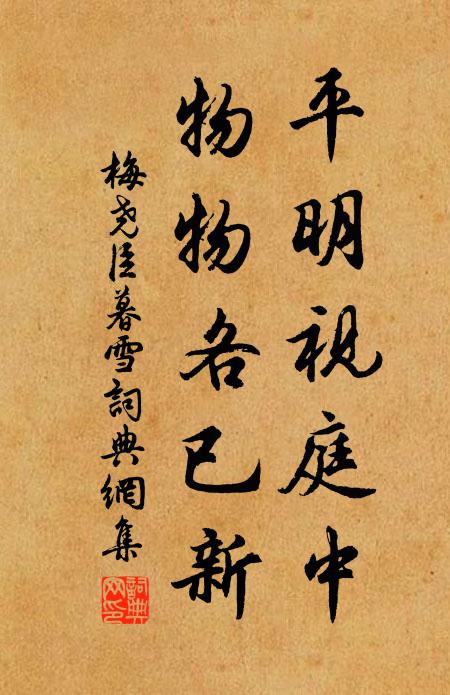 平明視庭中
物物各已新
梅尧臣暮雪詞典網集
詞典
网印